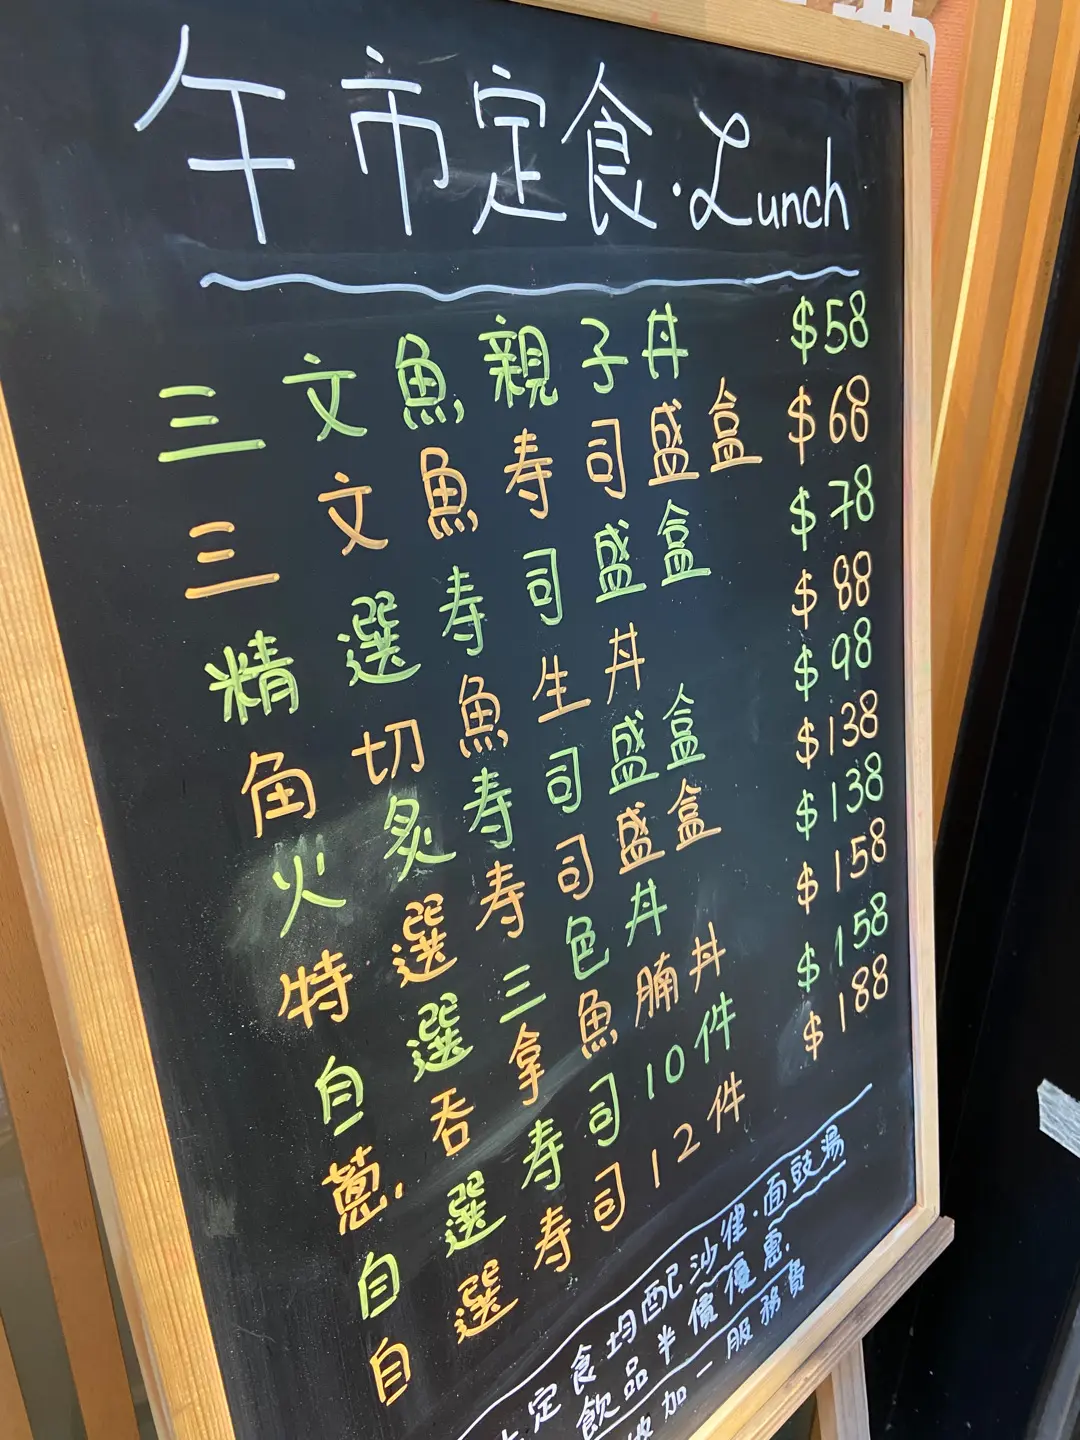 午市定食·Lunch
三文魚親子丼 $58
三文魚寿司盛盒 $68
精選寿司盛盒 $78
角切魚生丼 $88
火炙寿司盛盒 $98
特選寿司盛盒 $138
自選三色丼 $138
蔥吞拿魚腩丼 $158
自選寿司10件 $158
自選寿司12件 $188
定食均配沙律.面豉湯
飲品半價優惠
收加一服務費